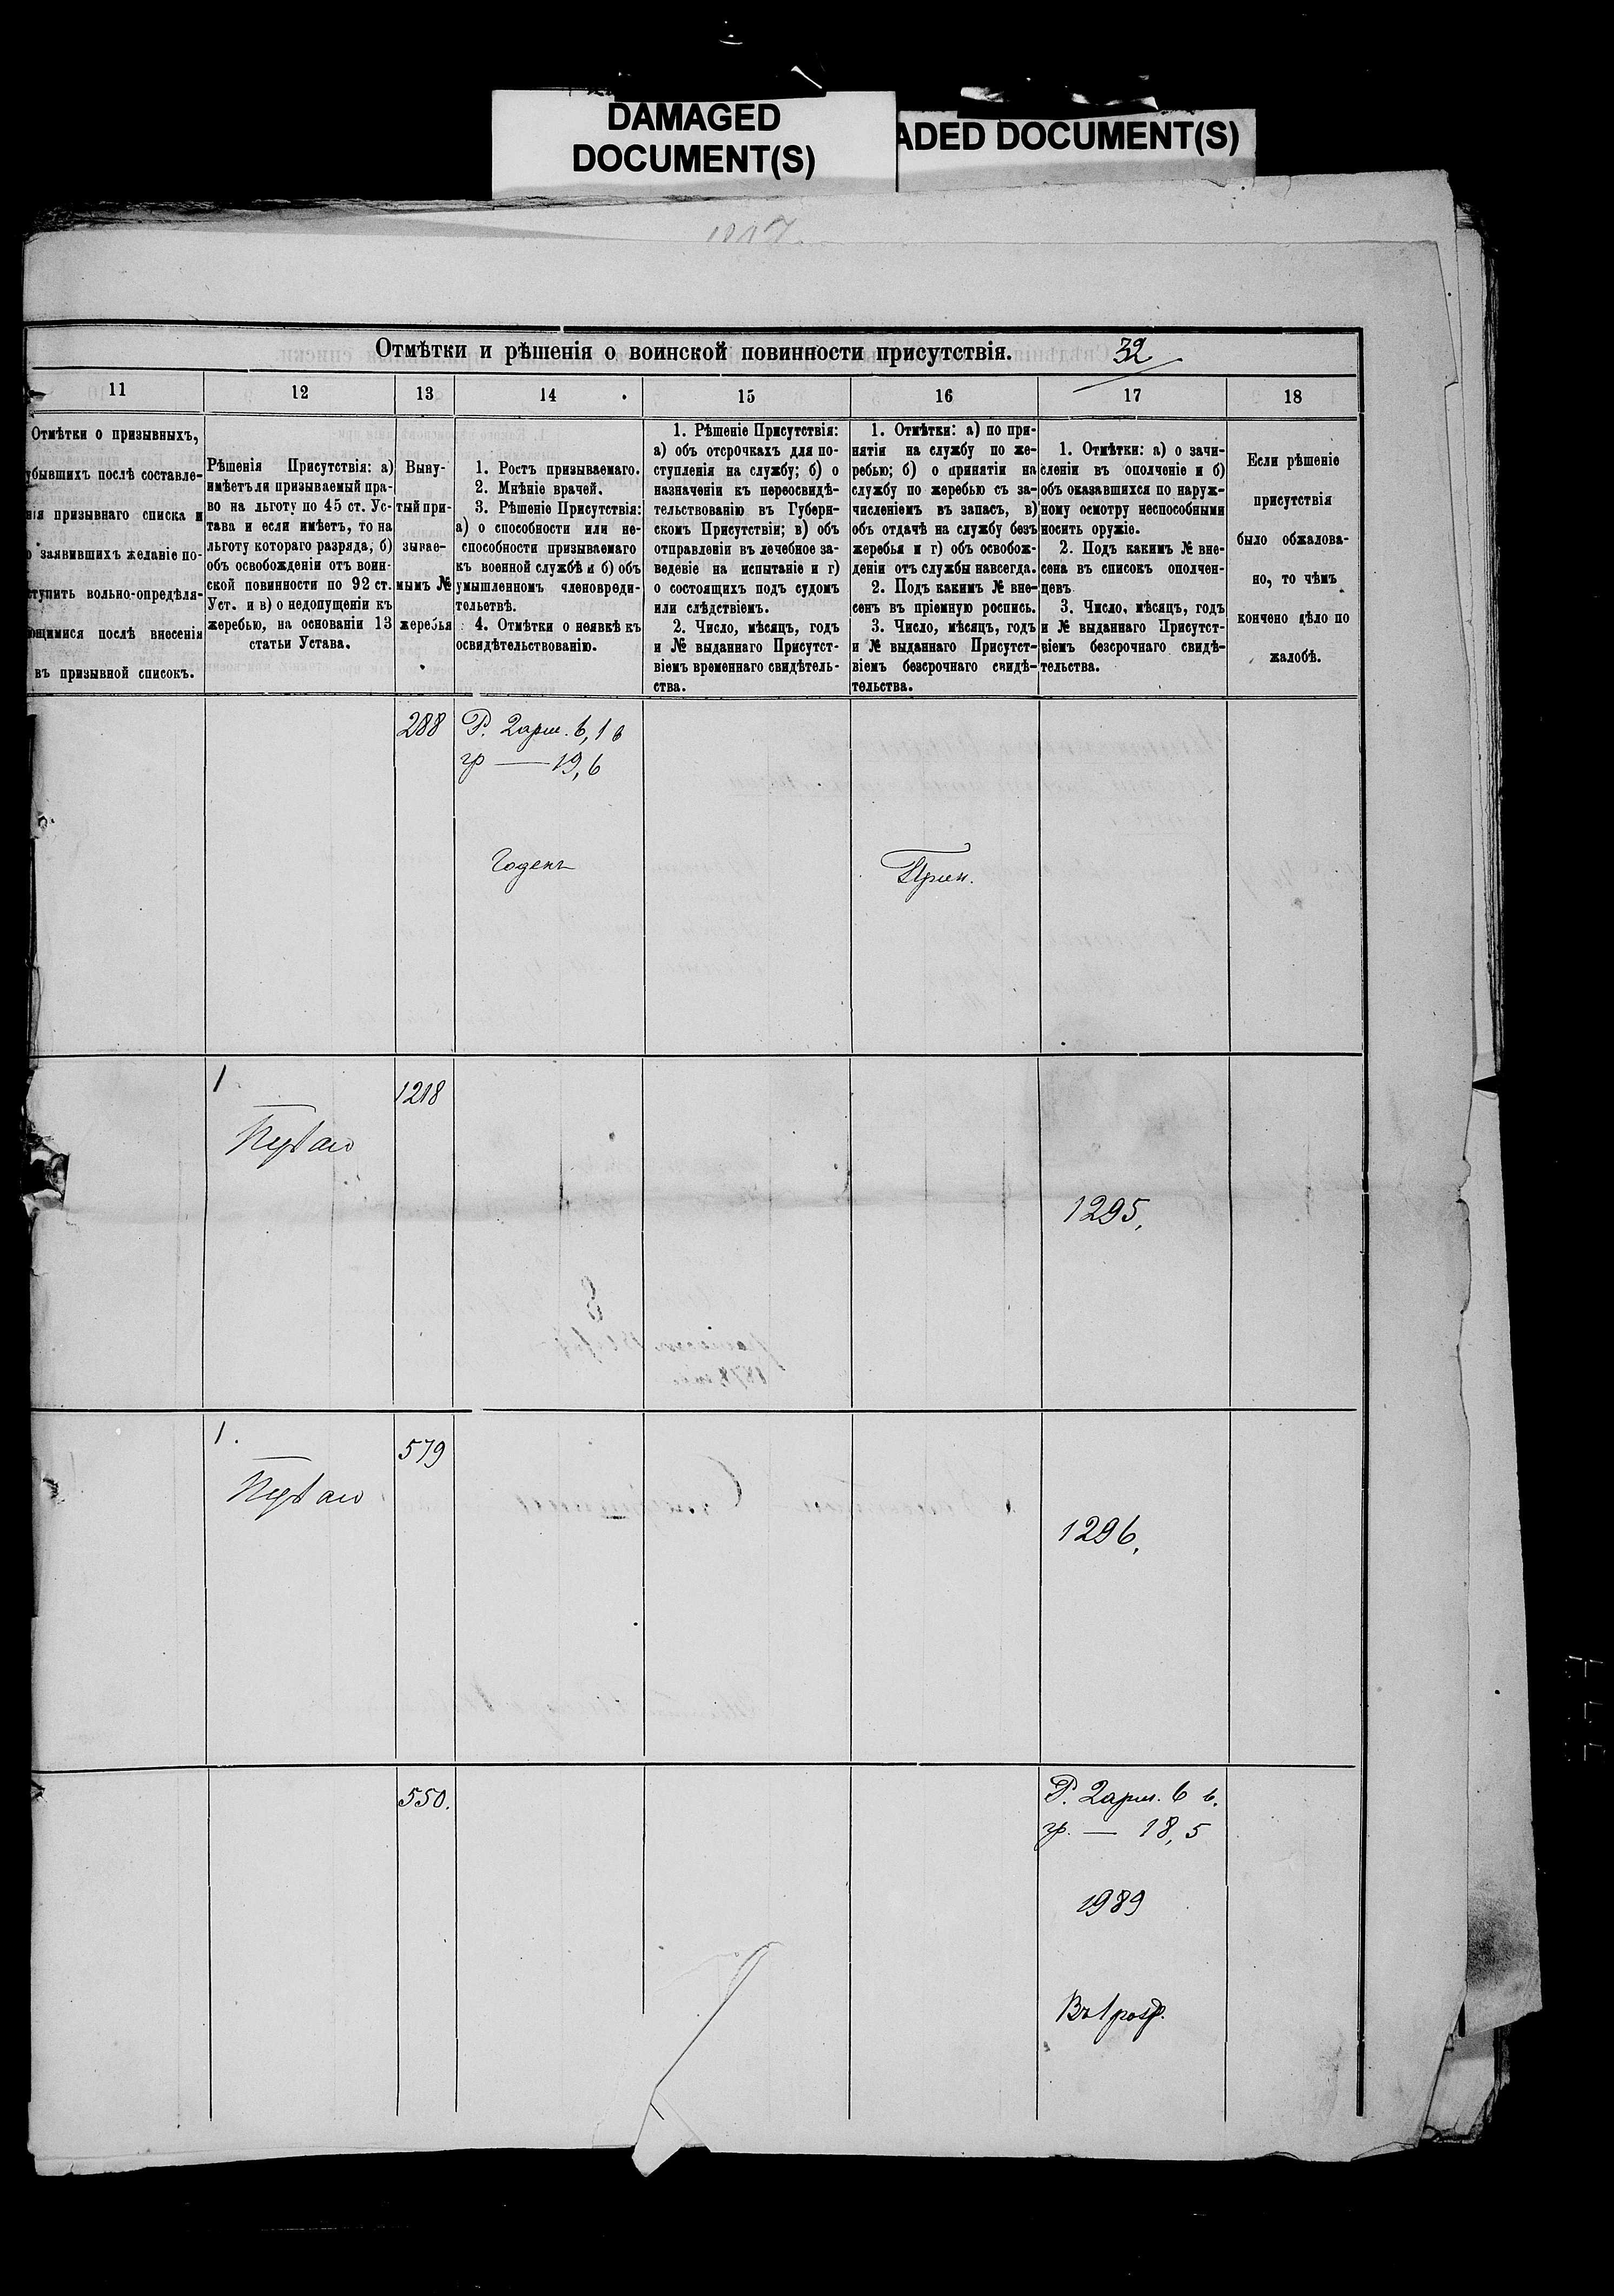 DAMAGED
DOCUMENT(S)
ADED DOCUMENT(S)
Отмѣтки и рѣшенія о воинской повинности присутствія.
32
11
12
13
14
15
16
17
18
Отмѣтки о призывныхъ,
убывшихъ послѣ составле-
нія призывнаго списка и
о заявившихъ желаніе по-
ступить вольно-опредѣля-
ющимися послѣ внесенія
въ призывной списокъ.
Рѣшенія Присутствія: а)
имѣетъ ли призываемый пра-
во на льготу по 45 ст. Ус-
тава и если имѣетъ, то на
льготу котораго разряда, б)
объ освобожденіи отъ воин-
ской повинности по 92 ст.
Уст. и в) о недопущеніи къ
жеребью, на основаніи 13
статьи Устава.
Выну-
тый при-
зывае-
мымъ №
жеребья
1. Ростъ призываемаго.
2. Мнѣніе врачей.
3. Рѣшеніе Присутствія:
а) о способности или не-
способности призываемаго
къ военной службѣ и б) объ
умышленномъ членовреди-
тельствѣ.
4. Отмѣтки о неявкѣ къ
освидѣтельствованію.
1. Рѣшеніе Присутствія:
а) объ отсрочкахъ для по-
ступленія на службу; б) о
назначеніи къ переосвидѣ-
тельствованію въ Губерн-
скомъ Присутствіи; в) объ
отправленіи въ лечебное за-
веденіе на испытаніе и г)
о состоящихъ подъ судомъ
или слѣдствіемъ.
2. Число, мѣсяцъ, годъ
и № выданнаго Присутст-
віемъ временнаго свидѣтель-
ства.
1. Отмѣтки: а) по при-
нятіи на службу по же-
ребью; б) о принятіи на
службу по жеребью съ за-
численіемъ въ запасъ, в)
объ отдачѣ на службу безъ
жеребья и г) объ освобож-
деніи отъ службы навсегда.
2. Подъ какимъ № вне-
сенъ въ пріемную роспись.
3. Число, мѣсяцъ, годъ
и № выданнаго Присутст-
віемъ безсрочнаго свидѣ-
тельства.
1. Отмѣтки: а) о зачи-
сленіи въ ополченіе и б)
объ оказавшихся по наруж-
ному осмотру неспособными
носить оружіе.
2. Подъ какимъ № вне-
сена въ списокъ ополчен-
цевъ.
3. Число, мѣсяцъ, годъ
и № выданнаго Присутст-
віемъ безсрочнаго свидѣ-
тельства.
Если рѣшеніе
присутствія
было обжалова-
но, то чѣмъ
кончено дѣло по
жалобѣ.
288
Р. 2 арш. 6,1 в
гр — 19,6
Годенъ
Прин.
1
1218
1295,
1.
579
1296,
550.
Р. 2 арш. 6 в.
гр. — 18,5
1989
Въ 1 разр.